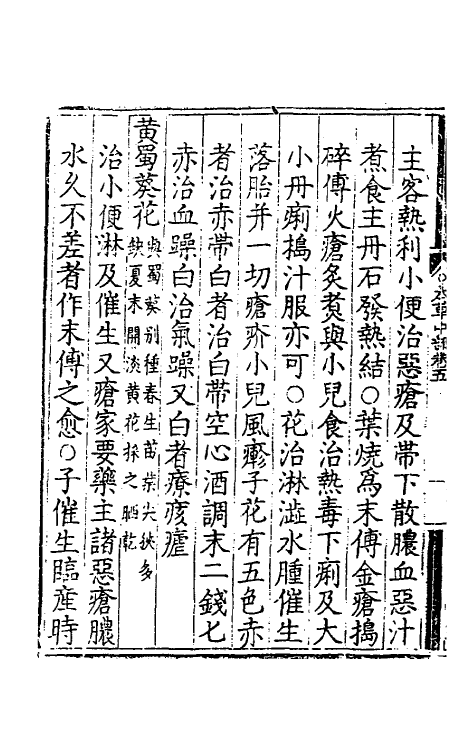 主客熱利小便治惡瘡及帶下散膿血惡汁
煮食主丹石發熱結○葉燒爲末傅金瘡搗
碎傅火瘡炙煑與小兒食治熱毒下痢及大
小丹痢搗汁服亦可○花治淋澁水腫催生
落胎并一切瘡疥小兒風𤺋子花有五色赤
者治赤帶白者治白帶空心酒調末二錢匕
赤治血躁白治氣躁又白者療痎瘧
黄蜀葵花與蜀葵別種春生苗葉尖狹多
缺夏末開淡黄花採之晒乾
治小便淋及催生又瘡家要藥主諸惡瘡膿
水久不差者作末傅之愈○子催生臨産時